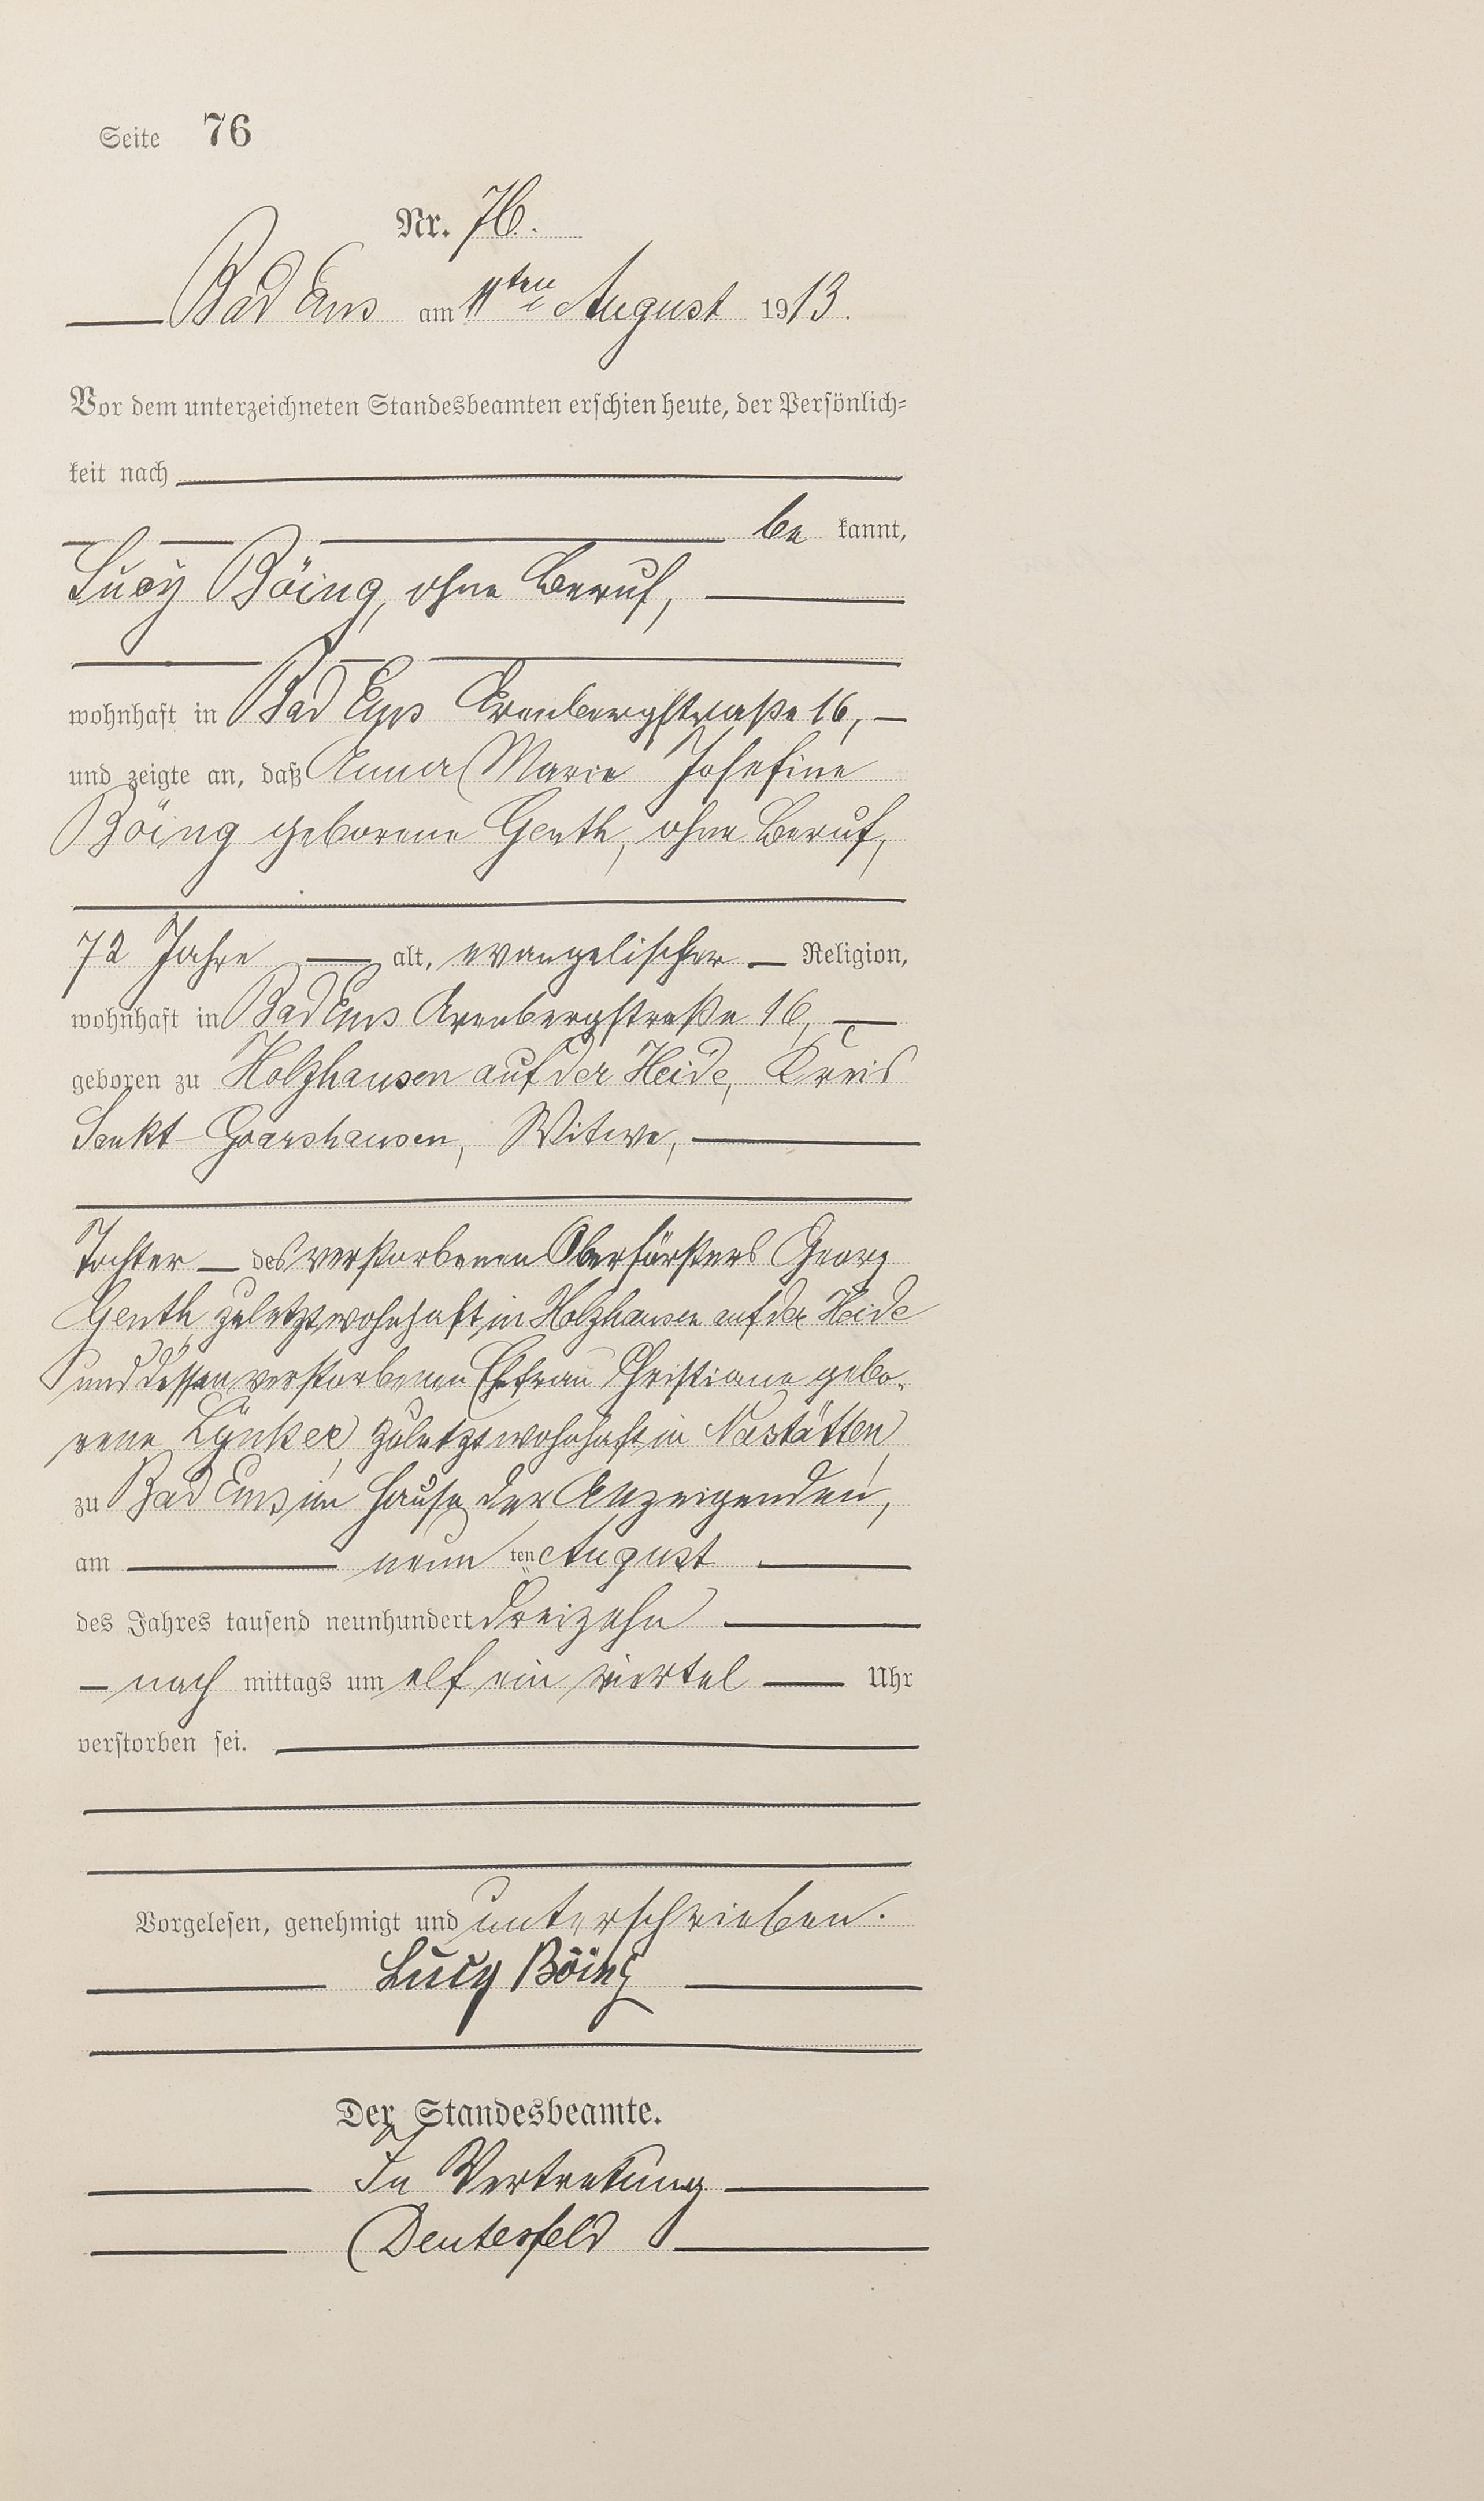 Seite 76
Nr. 76.
Bad Ems am 11ten August 1913.
Vor dem unterzeichneten Standesbeamten erschien heute, der Persönlich=
keit nach
be kannt,
Lucy Böing, ohne Beruf,
wohnhaft in Bad Ems Arenbergstraße 16,
und zeigte an, daß Anna Marie Josefine
Böing geborene Genth, ohne Beruf,
72 Jahre alt, evangelischer Religion,
wohnhaft in Bad Ems Arenbergstraße 16,
geboren zu Holzhausen auf der Heide, Kreis
Sankt-Goarshausen, Witwe,
Tochter des verstorbenen Oberförsters Georg
Genth, zuletzt wohnhaft in Holzhausen auf der Heide
und dessen verstorbenen Ehefrau Christiane gebo-
rene zuletzt wohnhaft in Nastätten
zu Bad Ems im Hause der Anzeigenden,
am neun ten August
des Jahres tausend neunhundert dreizehn
nach mittags um elf ein viertel Uhr
verstorben sei.
Vorgelesen, genehmigt und unterschrieben.
Lucy Böing
Der Standesbeamte.
In Vertretung
Deutesfeld